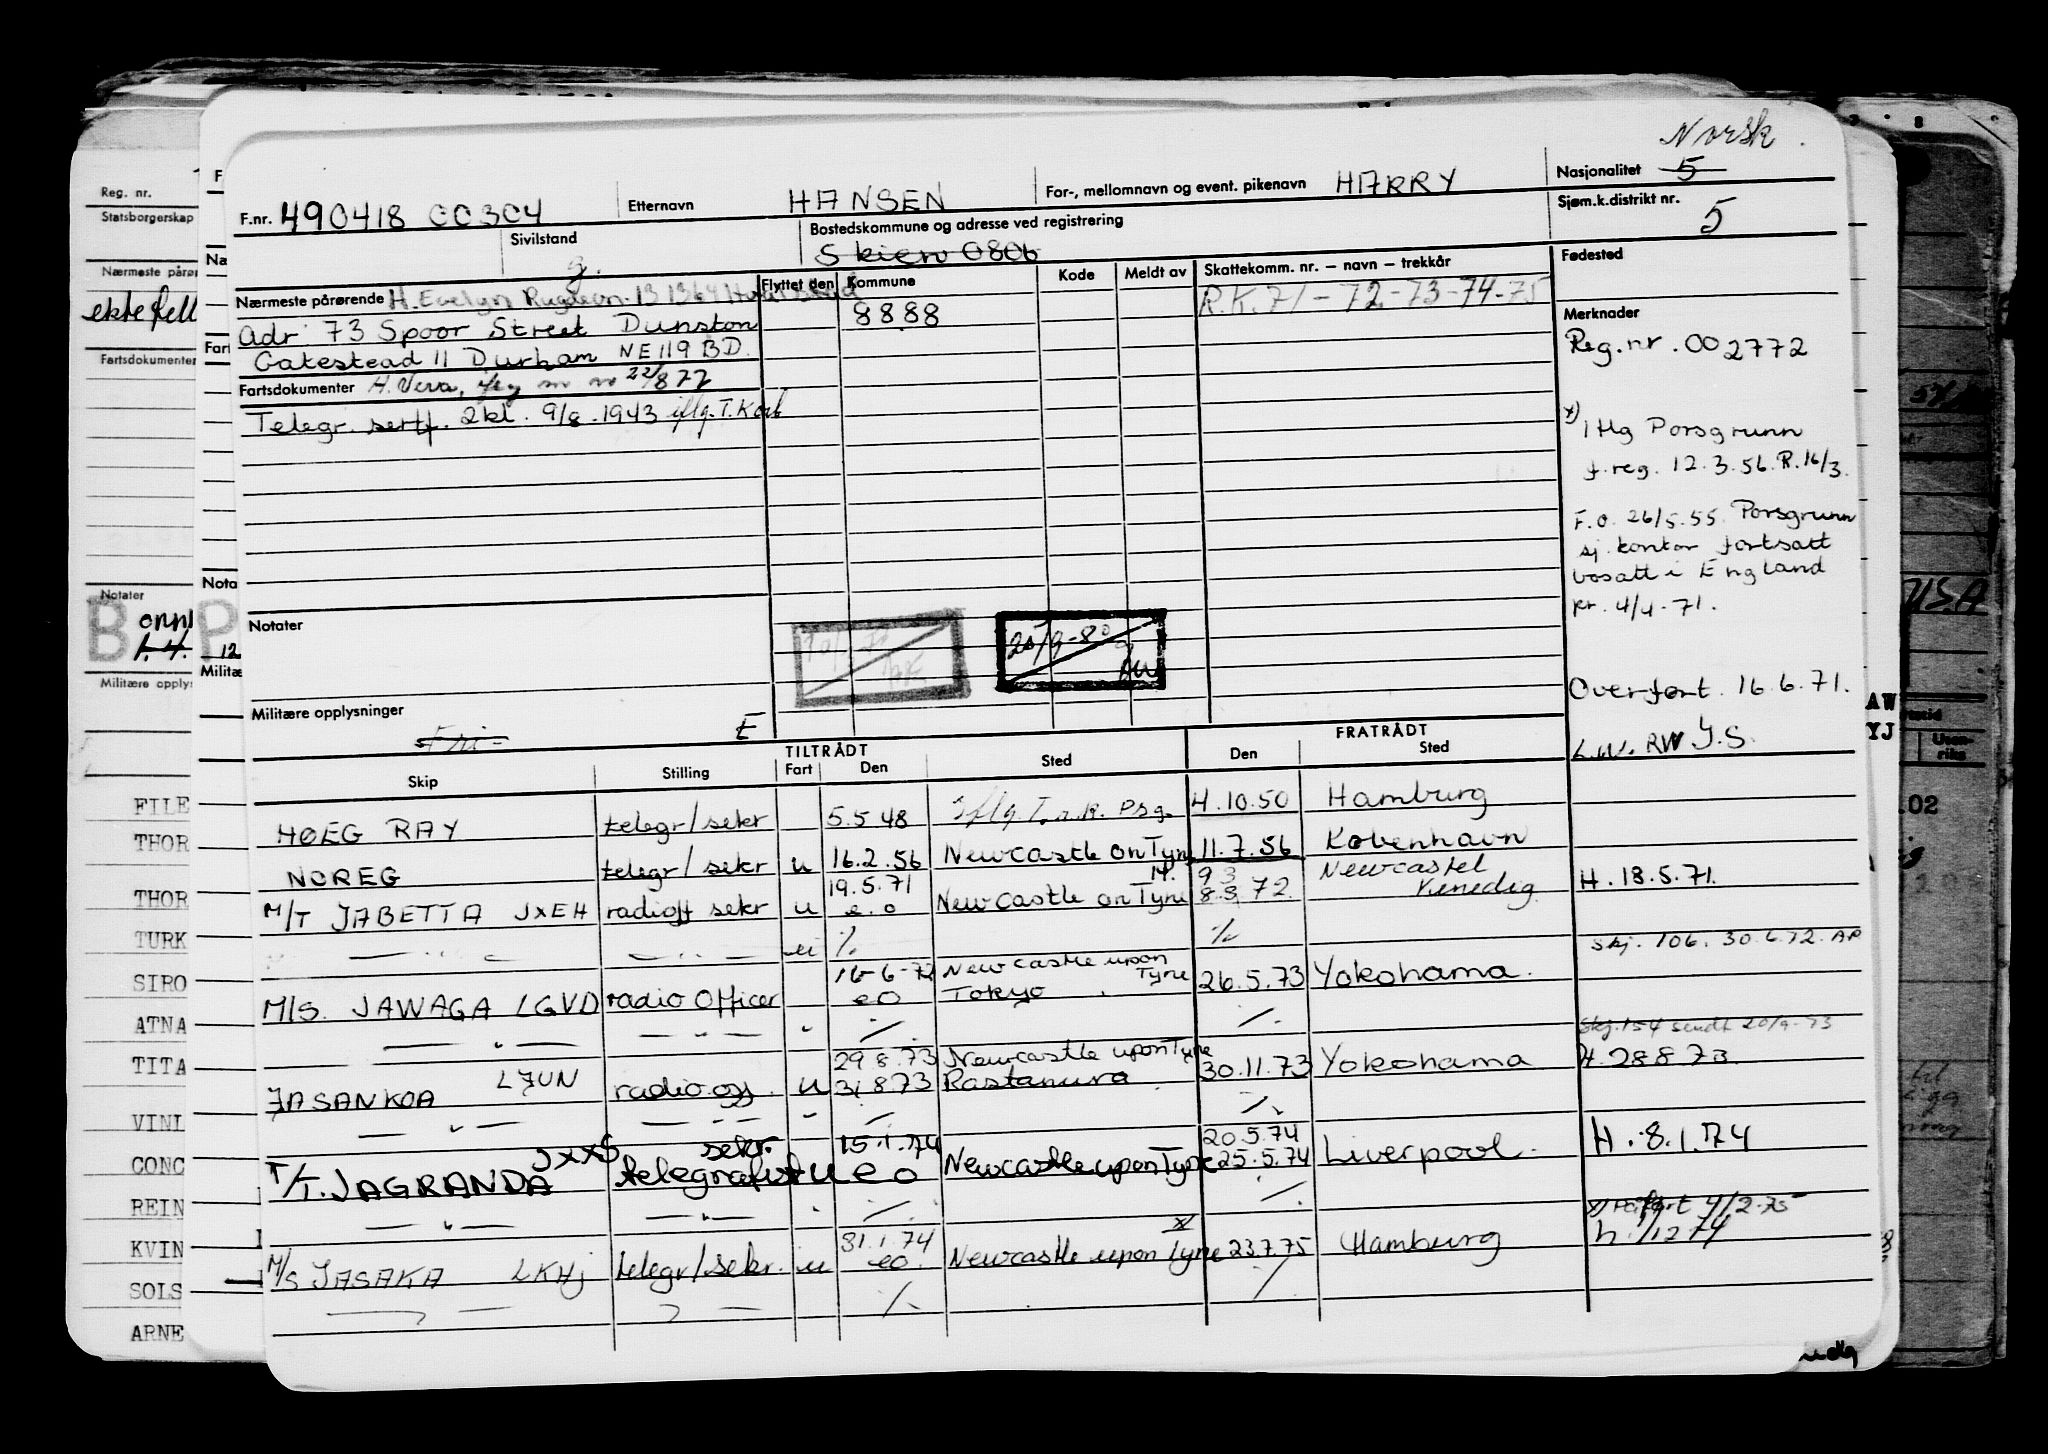 Norsk
F.nr. 490418 00304 Etternavn HANSEN For-, mellomnavn og event. pikenavn HARRY Nasjonalitet 5
Sivilstand g. Bostedskommune og adresse ved registrering Skien 0806 Sjøm.k.distrikt nr. 5
Nærmeste pårørende H. Evelyn Flyttet den Kommune Kode Meldt av Skattekomm. nr. – navn – trekkår Fødested
Adr: 73 Spoor Street Dunston 8888 R.K.71-72-73-74-75
Gatestead 11 Durham NE119BD.
Fartsdokumenter H. Vera, 22/8 77
Telegr. sertf. 2kl. 9/8.1943 iflg. T. Kort
Merknader
Reg.nr. 002772
x) I Hg Porsgrunn
f.reg. 12.3.56. R.16/3.
F.O. 26/5.55. Porsgrunn
sj. kontor fortsatt
bosatt i England
pr. 4/4-71.
Overført. 16.6.71.
L.W. RW J.S.
Notater
20/9-80
Militære opplysninger
Fri- E
TILTRÅDT FRATRÅDT
Skip Stilling Fart Den Sted Den Sted
HØEG RAY telegr/sekr 5.5 48 Iflg. T.a.R. Psg. 4.10.50 Hamburg
NOREG telegr/sekr u 16.2.56 Newcastle on Tyne 11.7.56 København
M/T JABETTA JXEH radioff sekr u 19.5.71 e.o Newcastle on Tyne 14. 9 3 8.3.72. Newcastel Venedig H. 18.5.71.
— " — — " — u ./. ./. Skj. 106. 30.6.72. AP
M/S. JAWAGA LGVD radio Officer 16-6-72 eo Newcastle upon Tyne Tokyo 26.5.73 Yokohama.
— " — — " — " ./. ./. Skj. 154 sendt 20/9-73
JASANKOA LJUN radio.off. u 29.8.73 31.8.73 Newcastle upon Tyne Rastanura 30.11.73 Yokohama H. 28 8 73
— " — — " — " ./. ./.
T/T. JAGRANDA JXXS telegrafist sekr. u 15.1.74 e o Newcastle upon Tyne 20.5.74 25.5.74 Liverpool. H. 8.1.74
— " — — " — " ./. ./. x) Påført 4/2-75
M/S JASAKA LKHJ telegr/sekr. u 31.1.74 eo. x) Newcastle upon Tyne 23.7.75 Hamburg h. 1/12 74
— " — — " — ./. ./.
Reg. nr.
Statsborgerskap
Nærmeste pårør
ektefell
Fartsdokumenter
Notater
B onnl
1.4. P
Militære opplys
FILE
THOR
THOR
TURK
SIRO
ATNA
TITA
VINL
CONC
REIN
KVIN
SOLS
ARNE
Nota
12
Militæ
USA
AW
YJ
Uten-
riks
.02